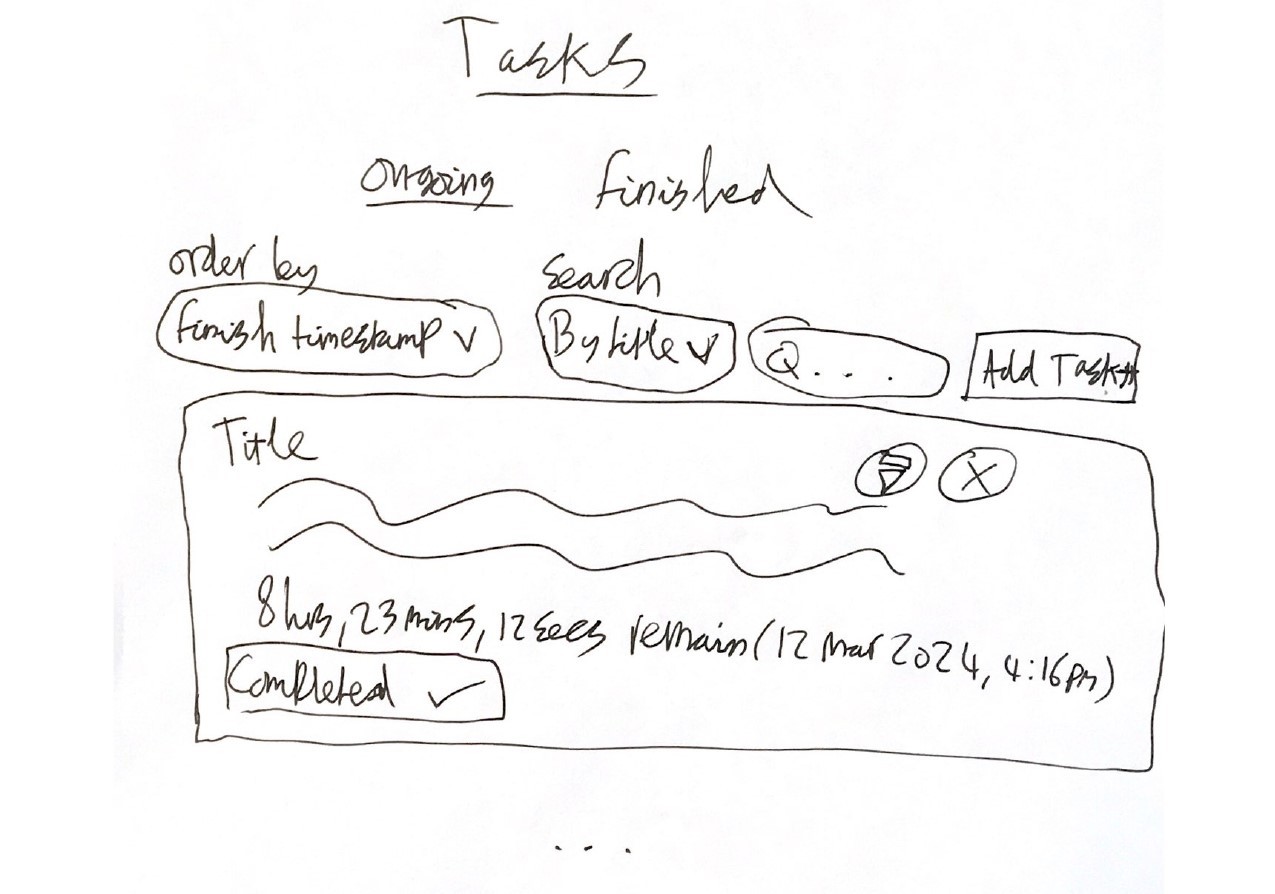 Tasks
Ongoing Finished
order by search
finish timestamp By title ...
Add Task+
Title
X
8 hrs, 23 mins, 12 secs remain (12 Mar 2024, 4:16pm)
Completed ✓
...